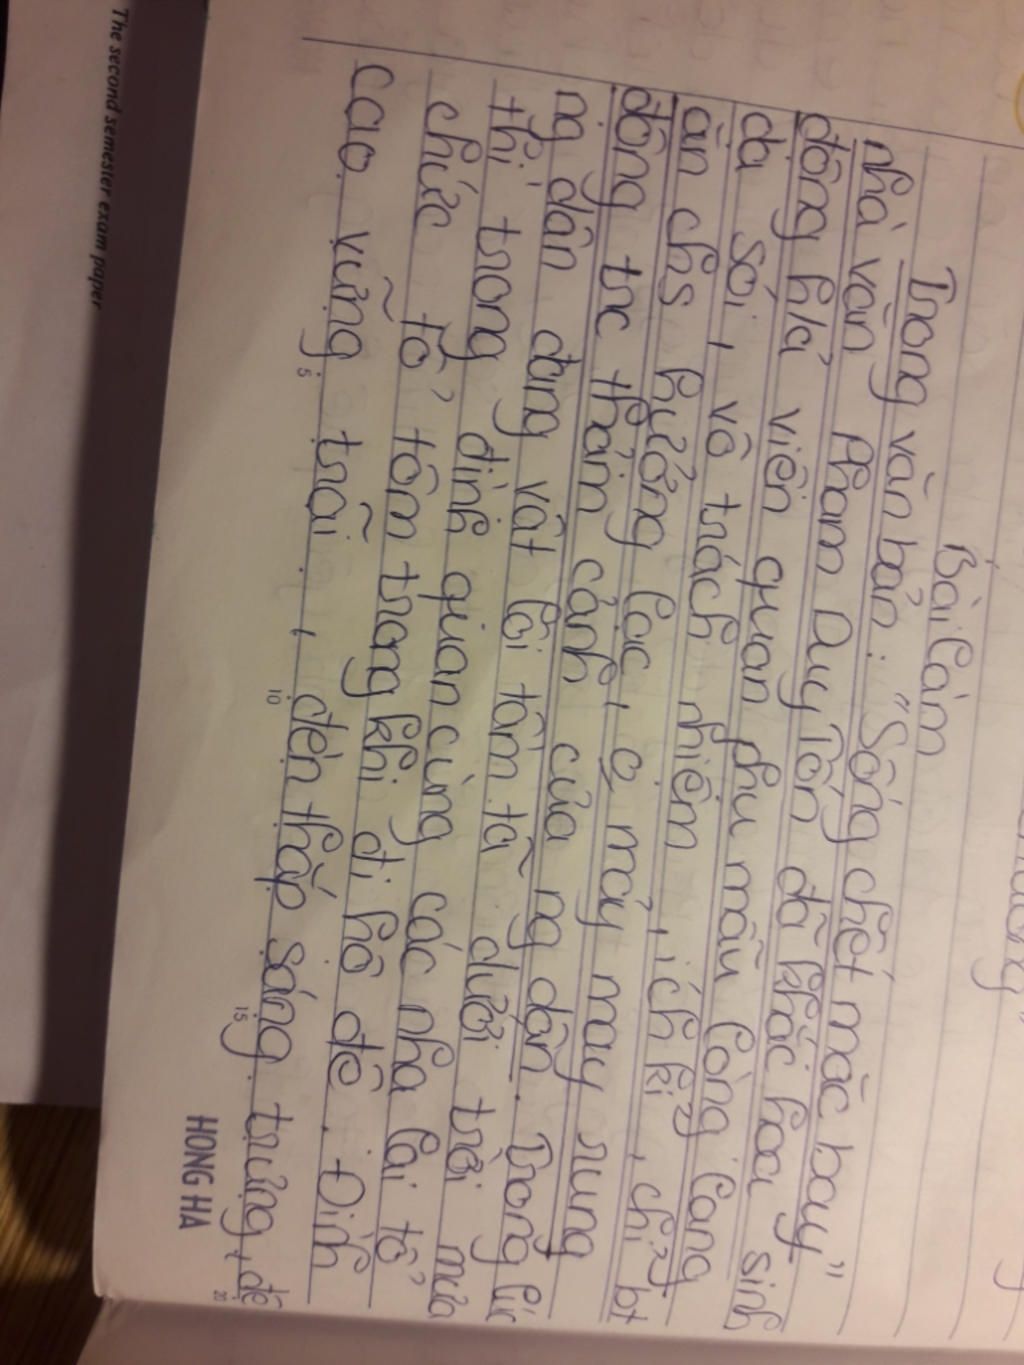 Bài làm
Trong văn bản: "Sống chết mặc bay"
nhà văn Phạm Duy Tốn đã khắc hoạ sinh
động h/ả viên quan phụ mẫu lòng lang
dạ sói, vô trách nhiệm, ích kỉ, chỉ bt
ăn chs hưởng lạc, o mảy may rung
động trc thảm cảnh của ng dân. Trong lúc
ng dân đang vật lôi tầm tã dưới trời mưa
thì trong đình quan cùng các nha lại tổ
chức tổ tôm trong khi đi hộ đê. Đình
cao, vững trãi, đèn thắp sáng trưng, đê
The second semester exam paper
5
10
15
20
HONG HA